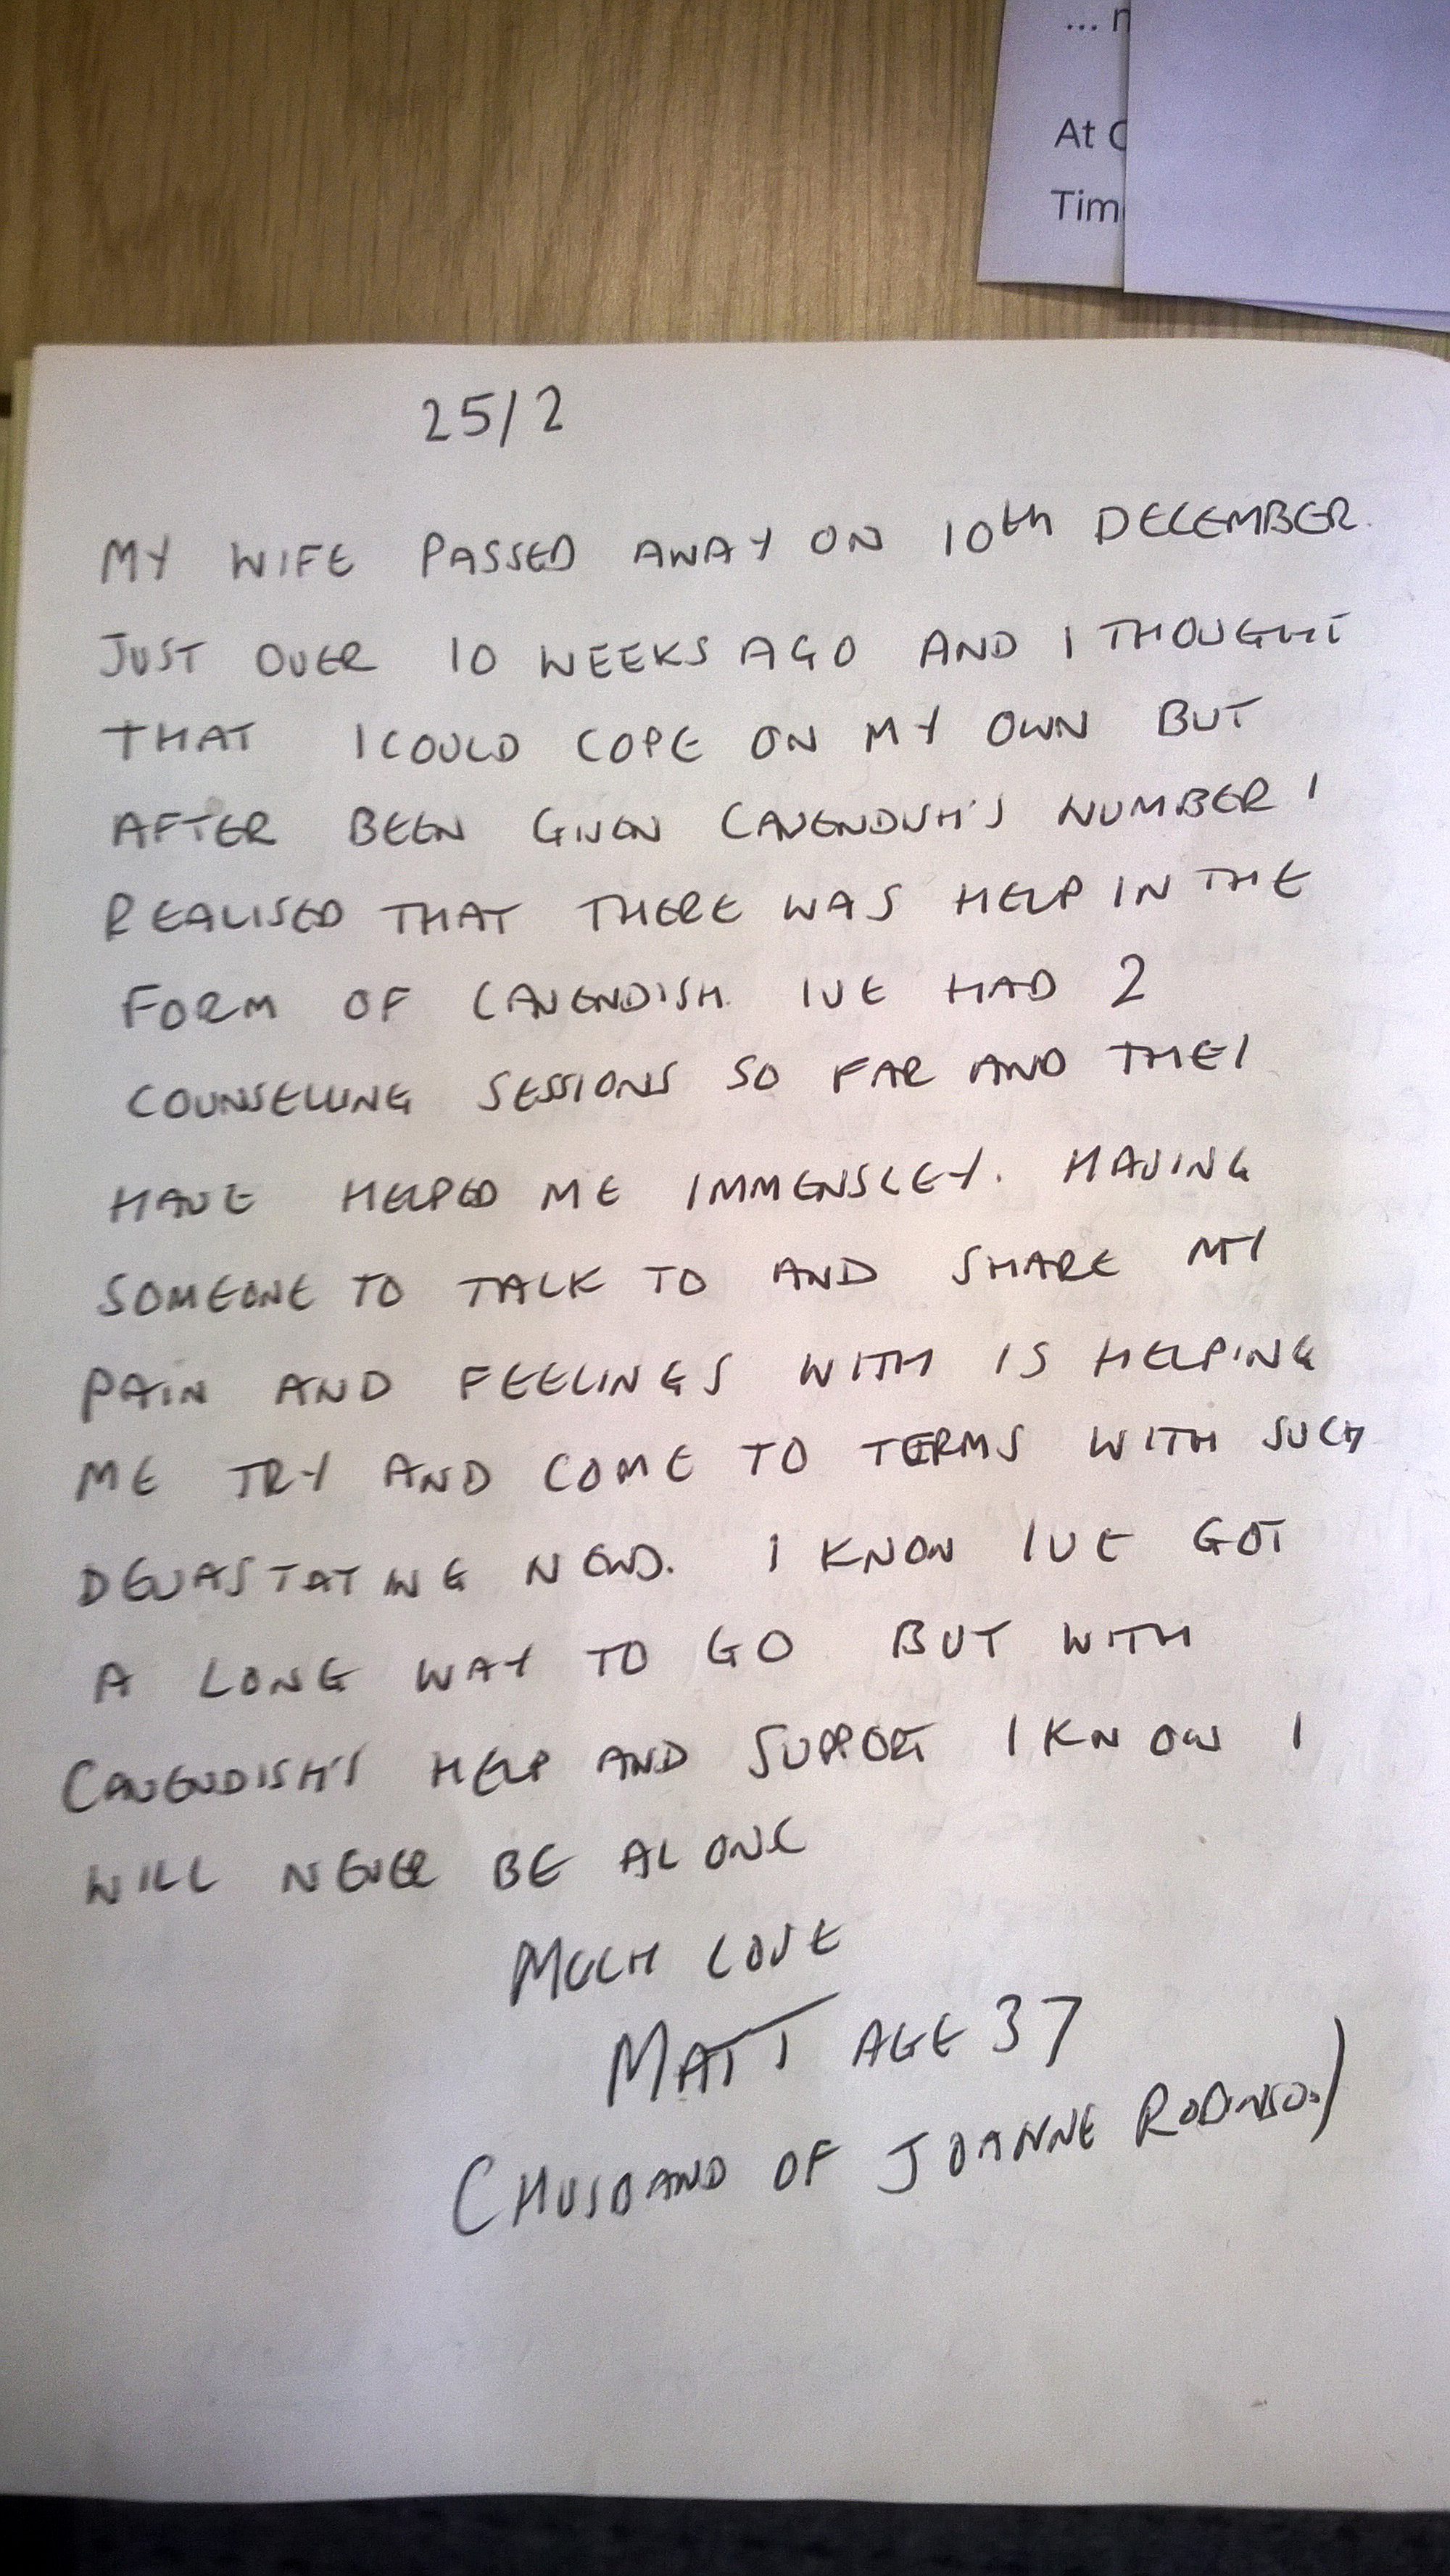 ... n
At C
Tim
25/2
MY WIFE PASSED AWAY ON 10th DECEMBER.
JUST OVER 10 WEEKS AGO AND I THOUGHT
THAT I COULD COPE ON MY OWN BUT
AFTER BEEN GIVEN CAVENDISH'S NUMBER I
REALISED THAT THERE WAS HELP IN THE
FORM OF CAVENDISH. IVE HAD 2
COUNSELLING SESSIONS SO FAR AND THEY
HAVE HELPED ME IMMENSLEY. HAVING
SOMEONE TO TALK TO AND SHARE MY
PAIN AND FEELINGS WITH IS HELPING
ME TRY AND COME TO TERMS WITH SUCH
DEVASTATING NEWS. I KNOW IVE GOT
A LONG WAY TO GO BUT WITH
CAVENDISH'S HELP AND SUPPORT I KNOW I
WILL NEVER BE ALONE
MUCH LOVE
MATT AGE 37
(HUSBAND OF JOANNE ROBINSON)